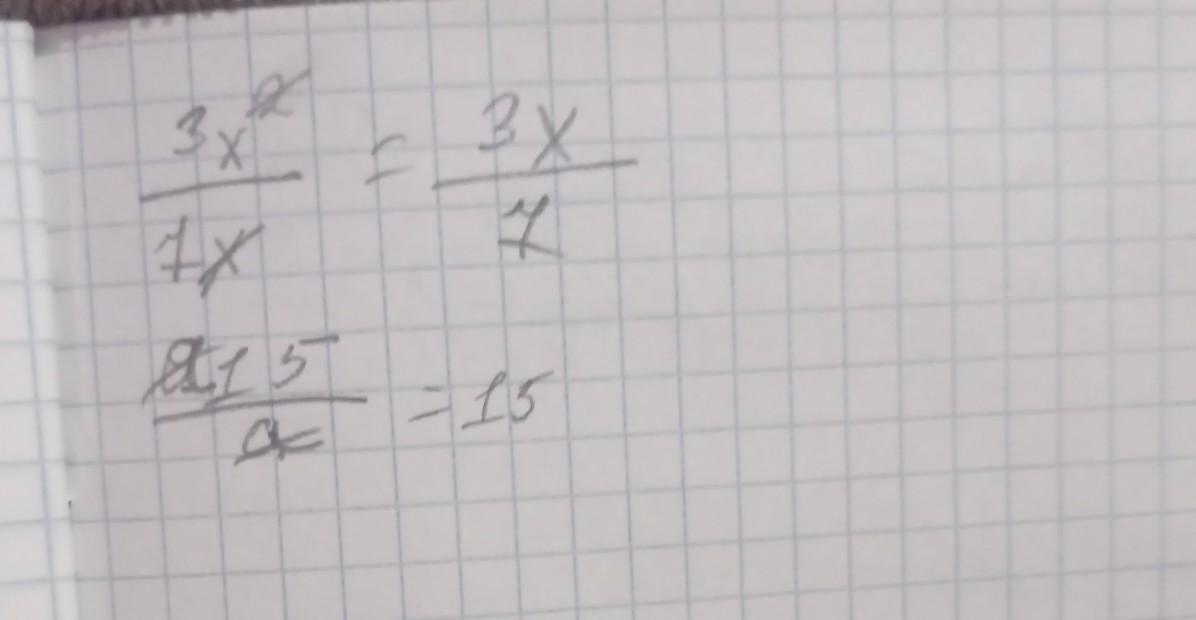 3x² / 7x = 3x / 7
a15 / a = 15